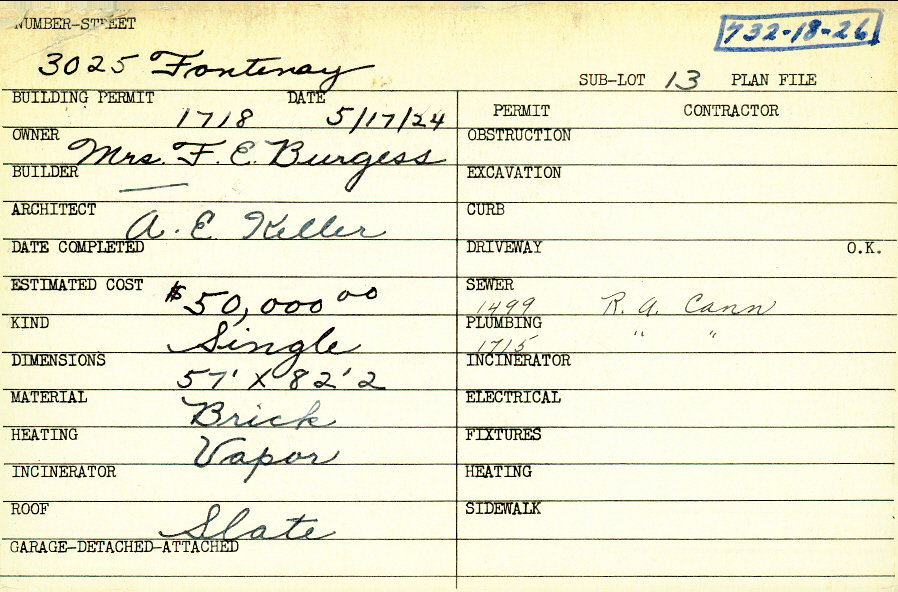 NUMBER-STREET
732-18-26
3025 Fontenay
SUB-LOT 13 PLAN FILE
BUILDING PERMIT DATE
1718 5/17/24
PERMIT CONTRACTOR
OWNER
Mrs. F. E. Burgess
OBSTRUCTION
BUILDER
—
EXCAVATION
ARCHITECT
A. E. Keller
CURB
DATE COMPLETED
DRIVEWAY O.K.
ESTIMATED COST
$50,000 00
SEWER
1499 R. A. Cann
KIND
Single
PLUMBING
1715 " "
DIMENSIONS
57' X 82' 2
INCINERATOR
MATERIAL
Brick
ELECTRICAL
HEATING
Vapor
FIXTURES
INCINERATOR
HEATING
ROOF
Slate
SIDEWALK
GARAGE-DETACHED-ATTACHED